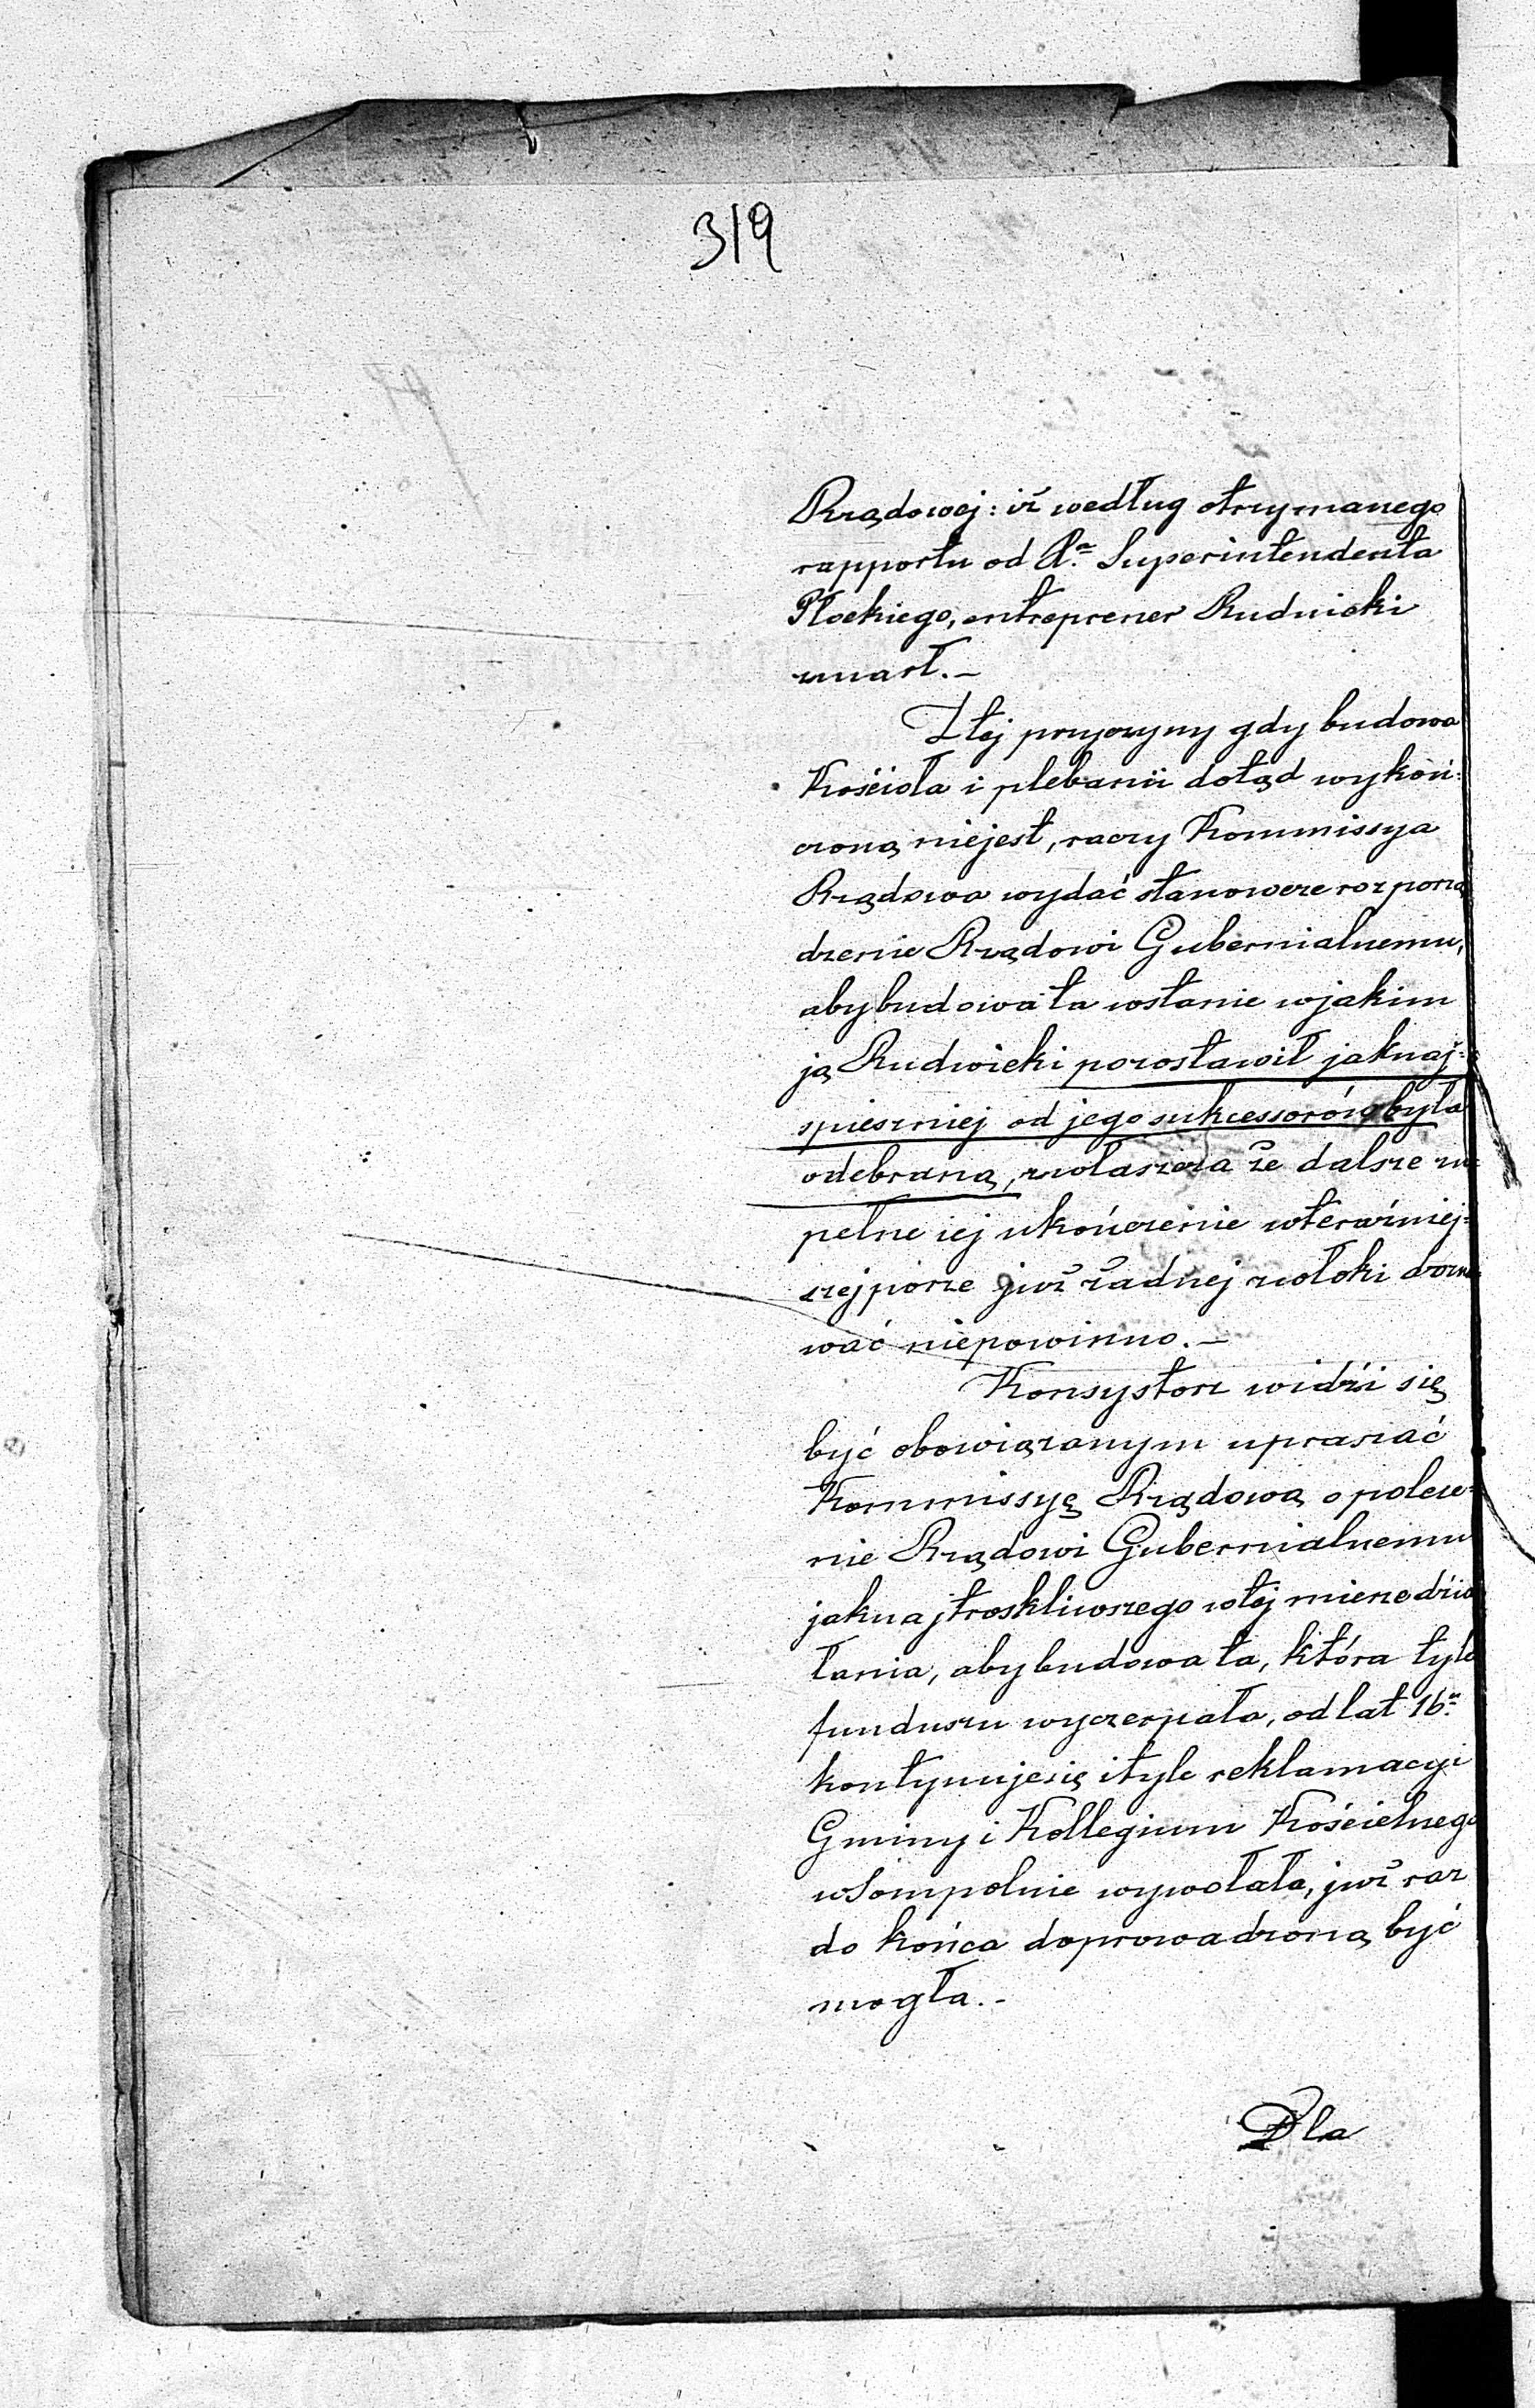 319
Rządowej: iż według otrzymanego
rapportu od X.ª Superintendenta
Płockiego, entreprener Rudnicki
zmarł.—
Z tej przyczyny gdy budowa
Kościoła i plebanii dotąd wykoń:
czoną niejest, raczy Kommissya
Rządowa wydać stanowcze rozporzą
dzenie Rządowi Gubernialnemu,
aby budowa ta wstanie wjakim
ją Rudnicki pozostawił jaknaj:
spieszniej od jego sukcessorów była
odebraną, zwłaszcza że dalsze zu:
pełne jej ukończenie wteraźniej:
szej porze już żadnej zwłoki dozna
wać niepowinno.—
Konsystorz widzi się
być obowiązanym upraszać
Kommissyę Rządową o polece:
nie Rządowi Gubernialnemu
jaknajtroskliwszego wtej mierze dzia
łania, aby budowa ta, która tyle
funduszu wyczerpała, od lat 16.
kontynuje się i tyle reklamacyi
Gminy i Kollegium Kościelnego
w Sompolnie wywołała, już raz
do końca doprowadzoną być
mogła.—
Dla